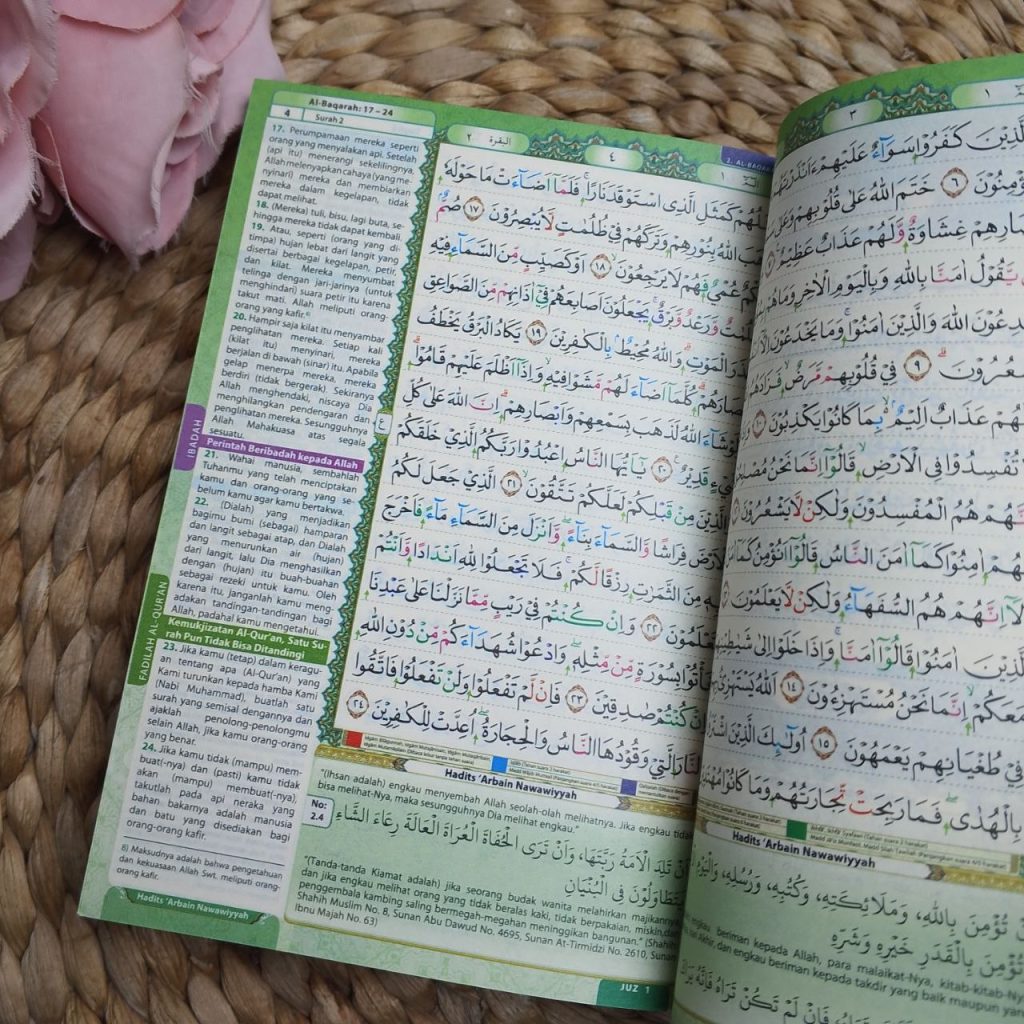 Al-Baqarah: 17 – 24
4 Surah 2
17. Perumpamaan mereka seperti
orang yang menyalakan api. Setelah
(api itu) menerangi sekelilingnya,
Allah melenyapkan cahaya (yang me-
nyinari) mereka dan membiarkan
mereka dalam kegelapan, tidak
dapat melihat.
18. (Mereka) tuli, bisu, lagi buta, se-
hingga mereka tidak dapat kembali.
19. Atau, seperti (orang yang di-
timpa) hujan lebat dari langit yang
disertai berbagai kegelapan, petir,
dan kilat. Mereka menyumbat
telinga dengan jari-jarinya (untuk
menghindari) suara petir itu karena
takut mati. Allah meliputi orang-
orang yang kafir.⁸⁾
20. Hampir saja kilat itu menyambar
penglihatan mereka. Setiap kali
(kilat itu) menyinari, mereka
berjalan di bawah (sinar) itu. Apabila
gelap menerpa mereka, mereka
berdiri (tidak bergerak). Sekiranya
Allah menghendaki, niscaya Dia
menghilangkan pendengaran dan
penglihatan mereka. Sesungguhnya
Allah Mahakuasa atas segala
sesuatu.
IBADAH
Perintah Beribadah kepada Allah
21. Wahai manusia, sembahlah
Tuhanmu yang telah menciptakan
kamu dan orang-orang yang se-
belum kamu agar kamu bertakwa.
22. (Dialah) yang menjadikan
bagimu bumi (sebagai) hamparan
dan langit sebagai atap, dan Dialah
yang menurunkan air (hujan)
dari langit, lalu Dia menghasilkan
dengan (hujan) itu buah-buahan
sebagai rezeki untuk kamu. Oleh
karena itu, janganlah kamu meng-
adakan tandingan-tandingan bagi
Allah, padahal kamu mengetahui.
FADILAH AL-QUR'AN
Kemukjizatan Al-Qur'an, Satu Su-
rah Pun Tidak Bisa Ditandingi
23. Jika kamu (tetap) dalam keragu-
an tentang apa (Al-Qur'an) yang
Kami turunkan kepada hamba Kami
(Nabi Muhammad), buatlah satu
surah yang semisal dengannya dan
ajaklah penolong-penolongmu
selain Allah, jika kamu orang-orang
yang benar.
24. Jika kamu tidak (mampu) mem-
buat(-nya) dan (pasti) kamu tidak
akan (mampu) membuat(-nya),
takutlah pada api neraka yang
bahan bakarnya adalah manusia
dan batu yang disediakan bagi
orang-orang kafir.
8) Maksudnya adalah bahwa pengetahuan
dan kekuasaan Allah Swt. meliputi orang-
orang kafir.
Hadits 'Arbain Nawawiyyah
البقرة ٢
٤
١
2. AL-BAQA
مَثَلُهُمْ كَمَثَلِ الَّذِى اسْتَوْقَدَ نَارًا ۚ فَلَمَّآ اَضَاۤءَتْ مَا حَوْلَهٗ
اللّٰهُ بِنُوْرِهِمْ وَتَرَكَهُمْ فِيْ ظُلُمٰتٍ لَّا يُبْصِرُوْنَ ١٧ صُمٌّ ۢ
عُمْيٌ فَهُمْ لَا يَرْجِعُوْنَ ۙ ١٨ اَوْ كَصَيِّبٍ مِّنَ السَّمَاۤءِ فِيْهِ
وَّرَعْدٌ وَّبَرْقٌ ۚ يَجْعَلُوْنَ اَصَابِعَهُمْ فِيْٓ اٰذَانِهِمْ مِّنَ الصَّوَاعِقِ
الْمَوْتِ ۗ وَاللّٰهُ مُحِيْطٌ ۢ بِالْكٰفِرِيْنَ ١٩ يَكَادُ الْبَرْقُ يَخْطَفُ
كُلَّمَآ اَضَاۤءَ لَهُمْ مَّشَوْا فِيْهِ ۙ وَاِذَآ اَظْلَمَ عَلَيْهِمْ قَامُوْا ۗ
شَاۤءَ اللّٰهُ لَذَهَبَ بِسَمْعِهِمْ وَاَبْصَارِهِمْ ۗ اِنَّ اللّٰهَ عَلٰى كُلِّ
قَدِيْرٌ ٢٠ يٰٓاَيُّهَا النَّاسُ اعْبُدُوْا رَبَّكُمُ الَّذِيْ خَلَقَكُمْ
مِنْ قَبْلِكُمْ لَعَلَّكُمْ تَتَّقُوْنَ ۙ ٢١ الَّذِيْ جَعَلَ لَكُمُ
فِرَاشًا وَّالسَّمَاۤءَ بِنَاۤءً ۖ وَّاَنْزَلَ مِنَ السَّمَاۤءِ مَاۤءً فَاَخْرَجَ
مِنَ الثَّمَرٰتِ رِزْقًا لَّكُمْ ۚ فَلَا تَجْعَلُوْا لِلّٰهِ اَنْدَادًا وَّاَنْتُمْ
تَعْلَمُوْنَ ٢٢ وَاِنْ كُنْتُمْ فِيْ رَيْبٍ مِّمَّا نَزَّلْنَا عَلٰى عَبْدِنَا
فَأْتُوْا بِسُوْرَةٍ مِّنْ مِّثْلِهٖ ۖ وَادْعُوْا شُهَدَاۤءَكُمْ مِّنْ دُوْنِ اللّٰهِ
كُنْتُمْ صٰدِقِيْنَ ٢٣ فَاِنْ لَّمْ تَفْعَلُوْا وَلَنْ تَفْعَلُوْا فَاتَّقُوا
النَّارَ الَّتِيْ وَقُوْدُهَا النَّاسُ وَالْحِجَارَةُ ۖ اُعِدَّتْ لِلْكٰفِرِيْنَ ٢٤
Hadits 'Arbain Nawawiyyah
"(Ihsan adalah) engkau menyembah Allah seolah-olah melihatnya. Jika engkau tidak
bisa melihat-Nya, maka sesungguhnya Dia melihat engkau."
No:
2.4
تَلِدَ الْاَمَةُ رَبَّتَهَا، وَاَنْ تَرَى الْحُفَاةَ الْعُرَاةَ الْعَالَةَ رِعَاءَ الشَّاءِ
يَتَطَاوَلُوْنَ فِي الْبُنْيَانِ
"(Tanda-tanda Kiamat adalah) jika seorang budak wanita melahirkan majikannya
dan jika engkau melihat orang yang tidak beralas kaki, tidak berpakaian, miskin, dan
penggembala kambing saling bermegah-megahan meninggikan bangunan." (Shahih
Shahih Muslim No. 8, Sunan Abu Dawud No. 4695, Sunan At-Tirmidzi No. 2610, Sunan
Ibnu Majah No. 63)
JUZ 1
٣
١
الَّذِيْنَ كَفَرُوْا سَوَاۤءٌ عَلَيْهِمْ ءَاَنْذَرْتَهُمْ
٦ خَتَمَ اللّٰهُ عَلٰى قُلُوْبِهِمْ وَعَلٰى
غِشَاوَةٌ وَّلَهُمْ عَذَابٌ عَظِيْمٌ
يَّقُوْلُ اٰمَنَّا بِاللّٰهِ وَبِالْيَوْمِ الْاٰخِرِ وَمَا هُمْ
اللّٰهَ وَالَّذِيْنَ اٰمَنُوْا ۚ وَمَا يَخْدَعُوْنَ اِلَّآ
يَشْعُرُوْنَ ۗ ٩ فِيْ قُلُوْبِهِمْ مَّرَضٌ ۙ فَزَادَهُمُ
عَذَابٌ اَلِيْمٌ ۢ ەۙ بِمَا كَانُوْا يَكْذِبُوْنَ ١٠
تُفْسِدُوْا فِى الْاَرْضِ ۙ قَالُوْٓا اِنَّمَا نَحْنُ
هُمُ الْمُفْسِدُوْنَ وَلٰكِنْ لَّا يَشْعُرُوْنَ
اٰمِنُوْا كَمَآ اٰمَنَ النَّاسُ قَالُوْٓا اَنُؤْمِنُ كَمَآ
اِنَّهُمْ هُمُ السُّفَهَاۤءُ وَلٰكِنْ لَّا يَعْلَمُوْنَ
الَّذِيْنَ اٰمَنُوْا قَالُوْٓا اٰمَنَّا ۚ وَاِذَا خَلَوْا اِلٰى شَيٰطِيْنِهِمْ
مَعَكُمْ ۙ اِنَّمَا نَحْنُ مُسْتَهْزِءُوْنَ ١٤ اَللّٰهُ يَسْتَهْزِئُ
فِيْ طُغْيَانِهِمْ يَعْمَهُوْنَ ١٥ اُولٰۤىِٕكَ الَّذِيْنَ
بِالْهُدٰى ۖ فَمَا رَبِحَتْ تِّجَارَتُهُمْ وَمَا كَانُوْا
Hadits 'Arbain Nawawiyyah
تُؤْمِنَ بِاللهِ، وَمَلَائِكَتِهِ، وَكُتُبِهِ، وَرُسُلِهِ، وَالْيَوْمِ
تُؤْمِنَ بِالْقَدَرِ خَيْرِهِ وَشَرِّهِ
engkau beriman kepada Allah, para malaikat-Nya, kitab-kitab-Ny
Akhir, dan engkau beriman kepada takdir yang baik maupun yang
فَاِنْ لَمْ تَكُنْ تَرَاهُ فَاِنَّهُ يَرَاكَ